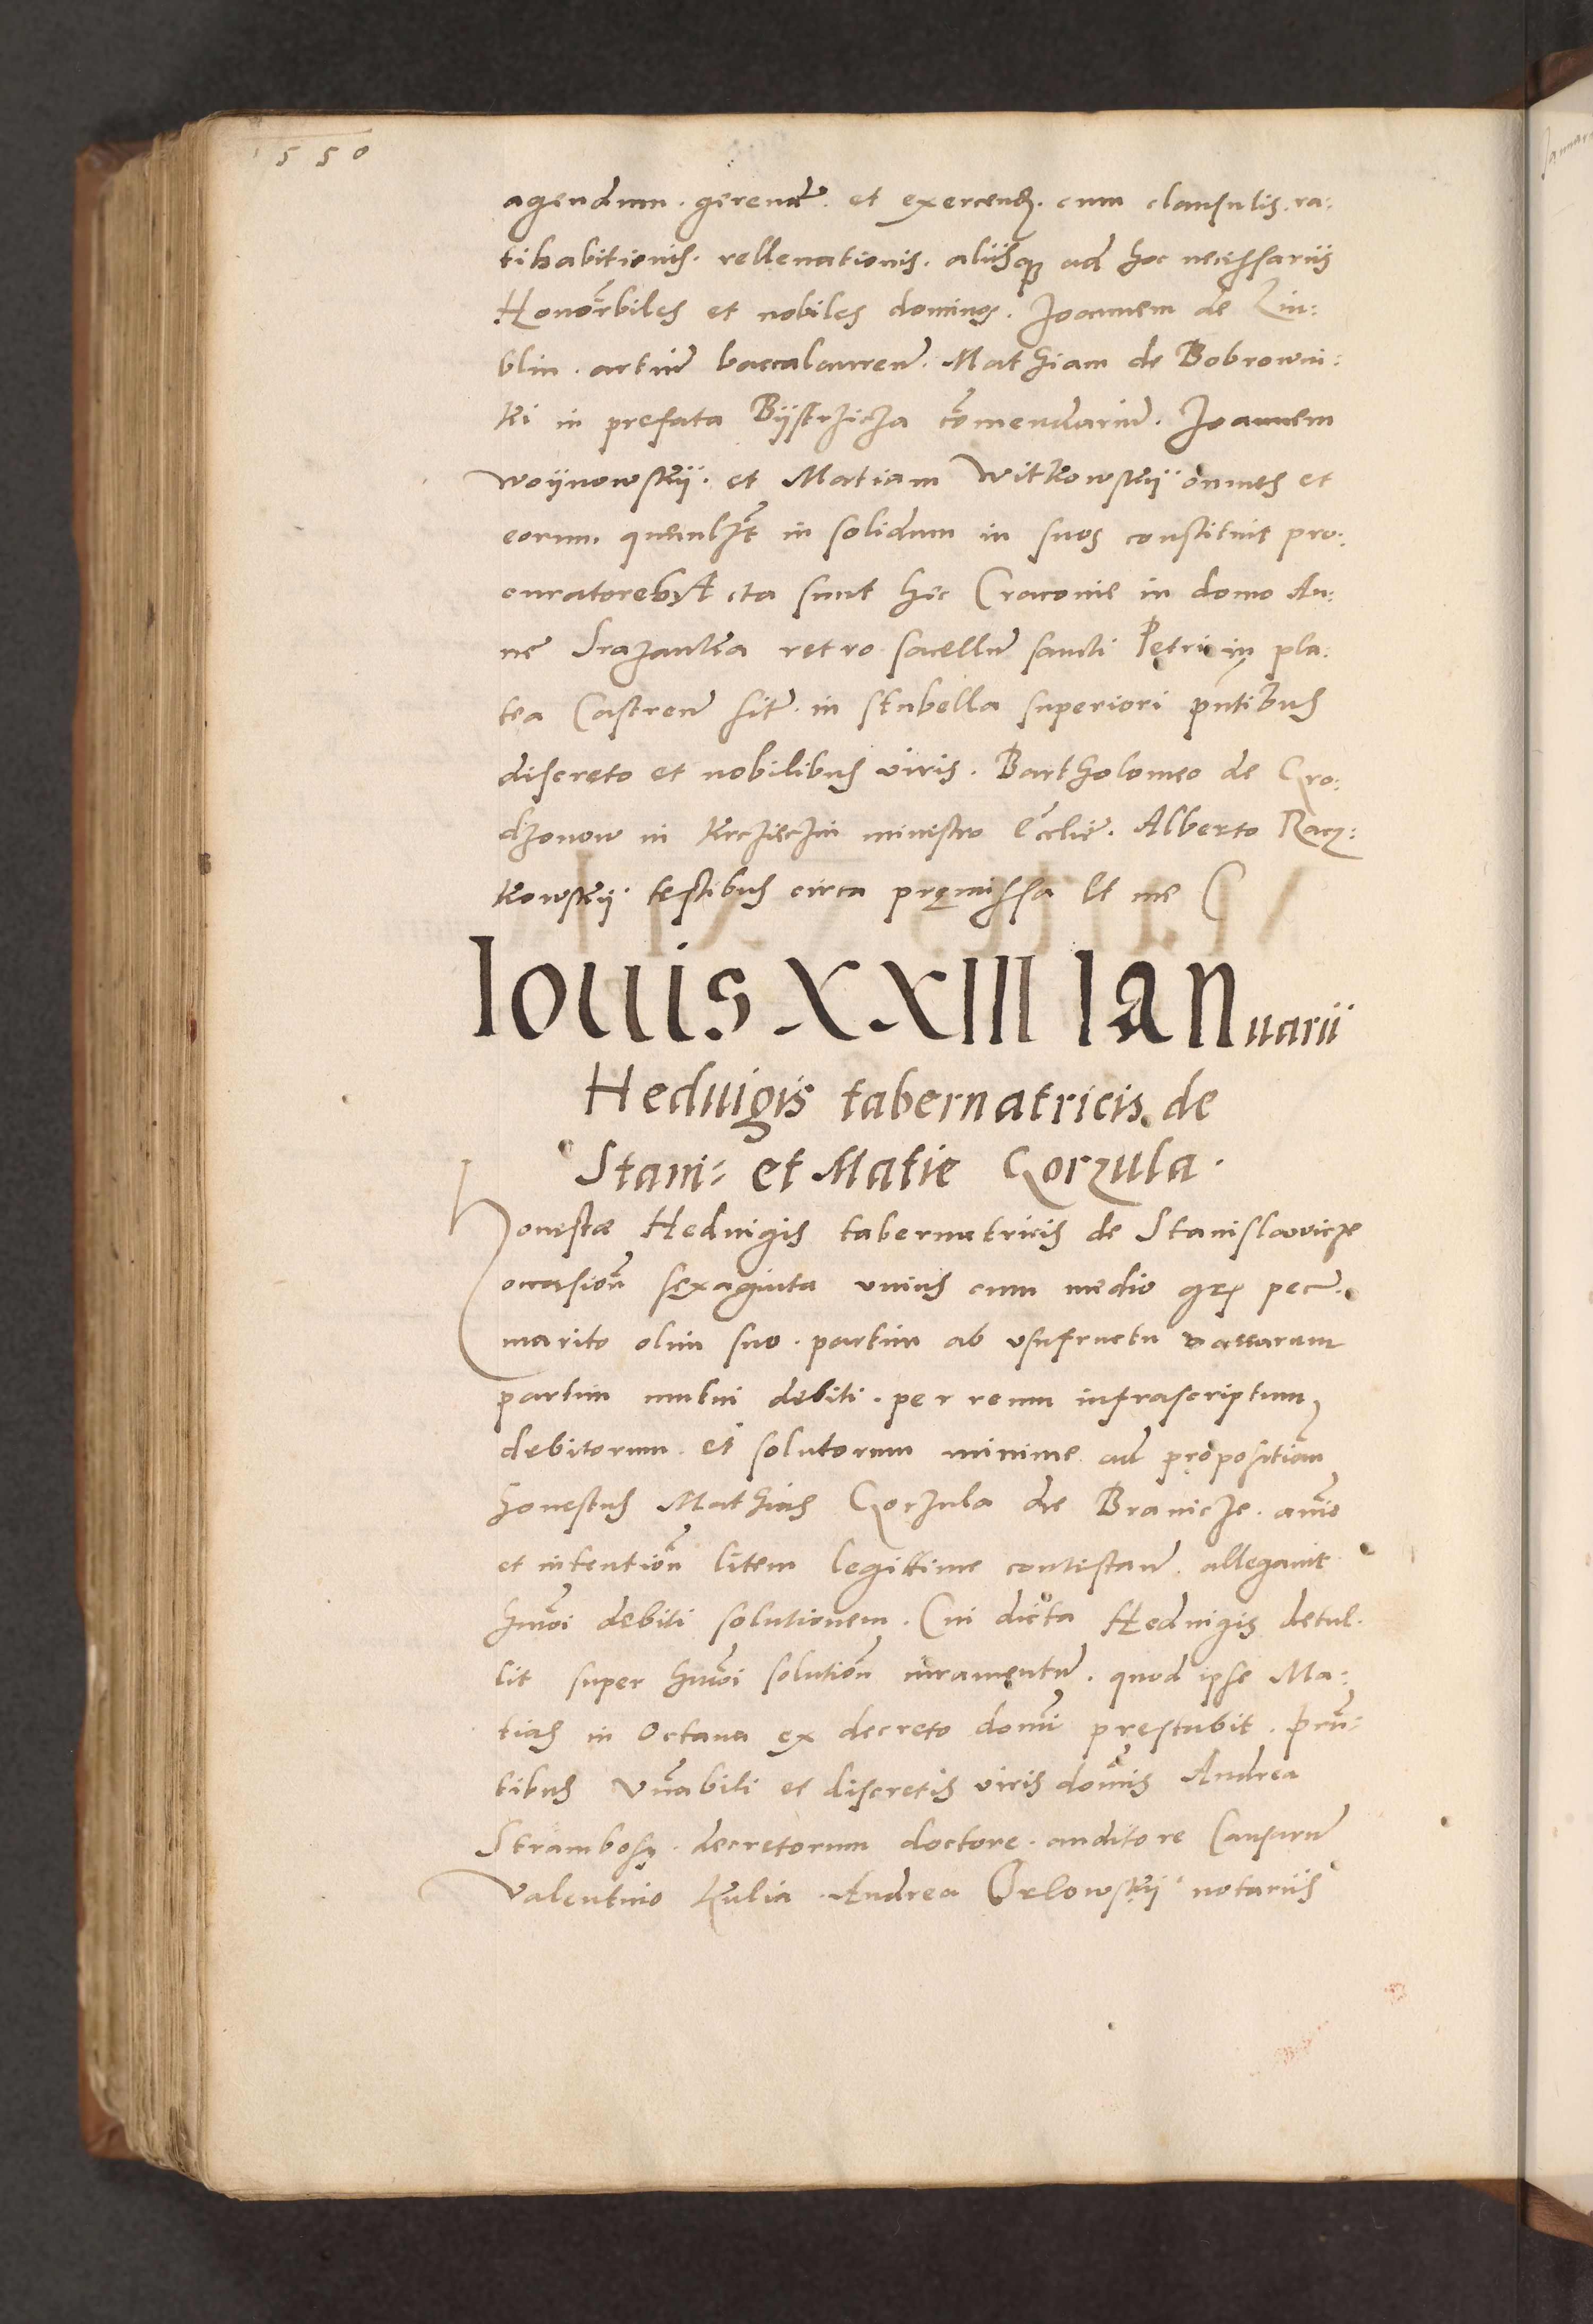 1550
agendum. gerend. et exercend. cum clausulis. ra:
tihabitionis. rellevationis. aliisque ad hoc necessariis
Honorbiles et nobiles dominos. Joannem de Lu:
blin. artium baccalaureum. Mathiam de Bobrowni:
ki in prefata Bijstrzicza comendarium. Joannem
Woijnowskij. et Matiam Witkowskij omnes et
eorum quemlzt in solidum in suos constituit pro:
curatores Acta sunt hec Cracovie in domo An:
ne retro sacellum sancti Petri in pla:
tea Castren sit. in stubella superiori pntibus
discreto et nobilibus viris. Bartholomeo de Gro:
dzonow in ministro Ecclie. Alberto Racz:
kowskij testibus circa premissa Et me C
Iouis XXIII IANuarii
Heduigis tabernatricis de
Stani: et Matie Gorzula.
Honestae Heduigis tabernatricis de Stanislawicze
occasion sexaginta unius cum medio grs pec.
marito olim suo. partim ab usufructu vaccarum
partim mutui debiti. per reum infrascriptum
debitorum. et solutorum minime ad propositiam
honestus Mathias Gorzula de Branicze. anio
et intention litem legittime contestan. allegavit
humoi debiti solutionem. Cui dicta Heduigis detul.
lit super humoi solution iuramentum. quod ipse Ma:
tias in Octava ex decreto domi prestabit. Prn:
tibus Vnabili et discretis viris domis Andrea
Strambosz. decretorum doctore. auditore Causarum
Valentino Kulia. Andrea Orlowskij notariis